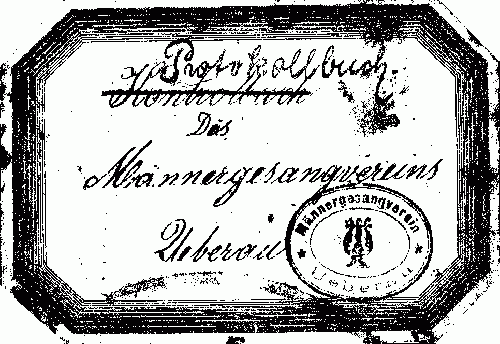 Protokollbuch.
Kontrollbuch
Des
Männergesangvereins
Ueberau
Männergesangverein
Ueberau